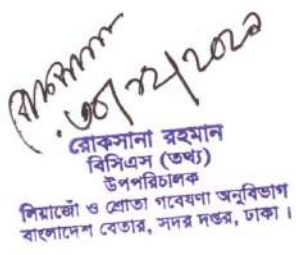 রোকসানা
৩০/১২/২০২০
রোকসানা রহমান
বিসিএস (তথ্য)
উপপরিচালক
লিয়াজোঁ ও শ্রোতা গবেষণা অনুবিভাগ
বাংলাদেশ বেতার, সদর দপ্তর, ঢাকা।